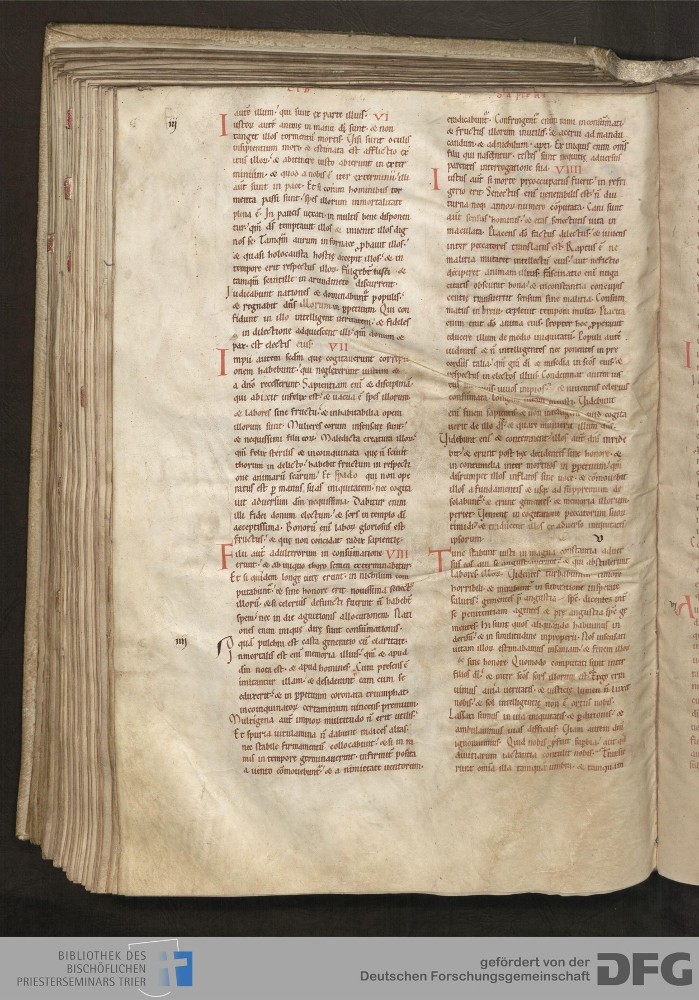 LIB
iii
autē illum· qui sunt ex parte illius· VI
Iustorū autē animę in manu dī sunt· & non
tanget illos tormentū mortis· Visi sunt oculis
insipientium mori· & estimata est afflictio ex
itus illorū· & abierunt in exter
minium· & quod a nobis ē iter exterminii· illi
autē sunt in pace· Et si coram hominibus tor
menta passi sunt· spes illorum inmortalitate
plena ē· In paucis uexati· in multis bene disponen
tur· qm̄ ds̄ temptauit illos· & inuenit illos dig
nos se· Tanquā aurum in fornace pbauit illos·
& quasi holocausta hostię accepit illos· & in
tempore erit respectus illorū· Fulgebt̄ iusti &
tanquā scintille in arundineto discurrent·
Iudicabunt nationes & dominabunt̄ populis·
& regnabit dn̄s illorum in ppetuum· Qui con
fidunt in illo intelligent ueritatem· & fideles
in dilectione adquiescent illi· qm̄ donum &
pax est electis eius· VII
Impii autem scdm̄ quę cogitauerunt correpti
onem habebunt· qui neglexerunt iustum &
a dnō recesserunt· Sapientiam eni & disciplinā
qui abicit infelix est· & uacua ē spes illorum·
& labores sine fructu· & inhabitabilia opera
illorum sunt· Mulieres eorum insensatę sunt·
& nequissimi filii eorū· Maledicta creatura illorū·
qm̄ felix sterilis & incoinquinata· quę n̄ sciuit
thorum in delicto· habebit fructum in respecti
one animarū scārum· Et spado qui non ope
ratus est p manus suas iniquitatem· nec cogita
uit aduersum dm̄ nequissima· Dabitur enim
illi fidei donum electum· & sors in templo dī
acceptissima· Bonorū eni laborū gloriosus est
fructus· & quę non concidat radix sapientię·
Filii autē adulterorum in consūmatione VIII
erunt· & ab iniquo thoro semen exterminabitur·
Et si quidem longę uitę erunt· in nichilum com
putabunt̄· & sine honore erit nouissima senect̄
illorū· & si celerius defuncti fuerint n̄ habebt̄
spem· nec in die agnitionis allocutionem· Nati
onis enim iniquę dirę sunt consūmationis·
iiii
O quā pulchra est casta generatio cū claritate·
Inmortalis est eni memoria illius· qm̄ & apud
dm̄ nota est· & apud homines· Cum presens ē
imitantur illam· & desiderant eam cum se
eduxerit· & in ppetuum coronata triumphat·
incoinquinatorū certaminum uincens premium·
Multigena autē impiorū multitudo n̄ erit utilis·
Et spuria uitulamina n̄ dabunt radices altas·
nec stabile firmamentū collocabunt· & si in ra
mis in tempore germinauerint· infirmitē posita
a uento cōmouebunt̄· & a nimietate uentorum
SAPIENT
eradicabunt̄· Confringentur eni rami inconsūmati·
& fructus illorum inutiles· & acerui ad mandu
candum· & ad nichilum apti· Ex iniquis enim omēs
filii qui nascuntur· testes sunt nequitię aduersus
parentes interrogatione sua· VIIII
Iustus autē si morte preoccupatus fuerit· in refri
gerio erit· Senectus eni uenerabilis est· n̄ diu
turna· neq annorū numero cōputata· Cani sunt
autē sensus hominis· & etas senectutis uita in
maculata· Placens dō factus dilectus· & uiuens
inter peccatores translatus est· Raptus ē ne
malitia mutaret intellectū eius· aut ne fictio
deciperet animam illius· Fascinatio eni nuga
citatis obscurat bona· & inconstantia concupis
centię transuertit sensum sine malitia· Consum
matus in breui· expleuit tempora multa· Placita
enim erat dō anima eius· Propter hoc pperauit
educere illum de medio iniquitatū· Populi autē
uidentes & n̄ intelligentes· nec ponentes in pre
cordiis talia· qm̄ grā dī & misedia in scōs eius· &
respectus in electos illius· Condemnat autem ius
tus mortuus uiuos impios· & iuuentus celerius
consūmata· longam uitam iniusti· Videbunt
eni finem sapientis· & non intelligent quid cogita
uerit de illo ds̄· & quare munierit illum dn̄s·
Videbunt eni & contemnent illos· autē dn̄s irride
bit· & erunt post hęc decidentes sine honore· &
in contumelia inter mortuos in ppetuum· qm̄
disrumpet illos inflatos sine uoce· & cōmouebit
illos a fundamentis· & usq ad supremum de
solabunt̄· & erunt gementes· & memoria illorum
periet· Venient in cogitatione peccatorum suorū
timidi· & traducent illos ex aduerso iniquitates
ipsorum·
v
Tunc stabunt iusti in magna constantia aduer
sus eos qui se angustiauerunt· & qui abstulerunt
labores illorū· Videntes turbabuntur timore
horribili· & mirabunt̄ in subitatione insperatę
salutis· gementes p̄ angustia sps̄· dicentes int̄
se penitentiam agentes· & prę angustia sps̄ ge
mentes· Hi sunt quos aliquando habuimus in
derisū· & in similitudine improperii· Nos insensati
uitam illorū estimabamus insaniam· & finem illorū
sine honore· Quomodo computati sunt inter
filios dī· & inter scōs sors illorū est· Ergo erra
uimus a uia ueritatis· & iusticię lumen n̄ luxit
nobis· & sol intelligentię non ē ortus nobis·
Lassati sumus in uia iniquitatis & pditionis· &
ambulauimus uias difficiles· Viam autem dnī
ignorauimus· Quid nobis pfuit supbia· aut qd
diuitiarum iactantia contulit nobis· Transie
runt omīa illa tamquā umbra· & tamquam
BIBLIOTHEK DES
BISCHÖFLICHEN
PRIESTERSEMINARS TRIER
gefördert von der
Deutschen Forschungsgemeinschaft
DFG